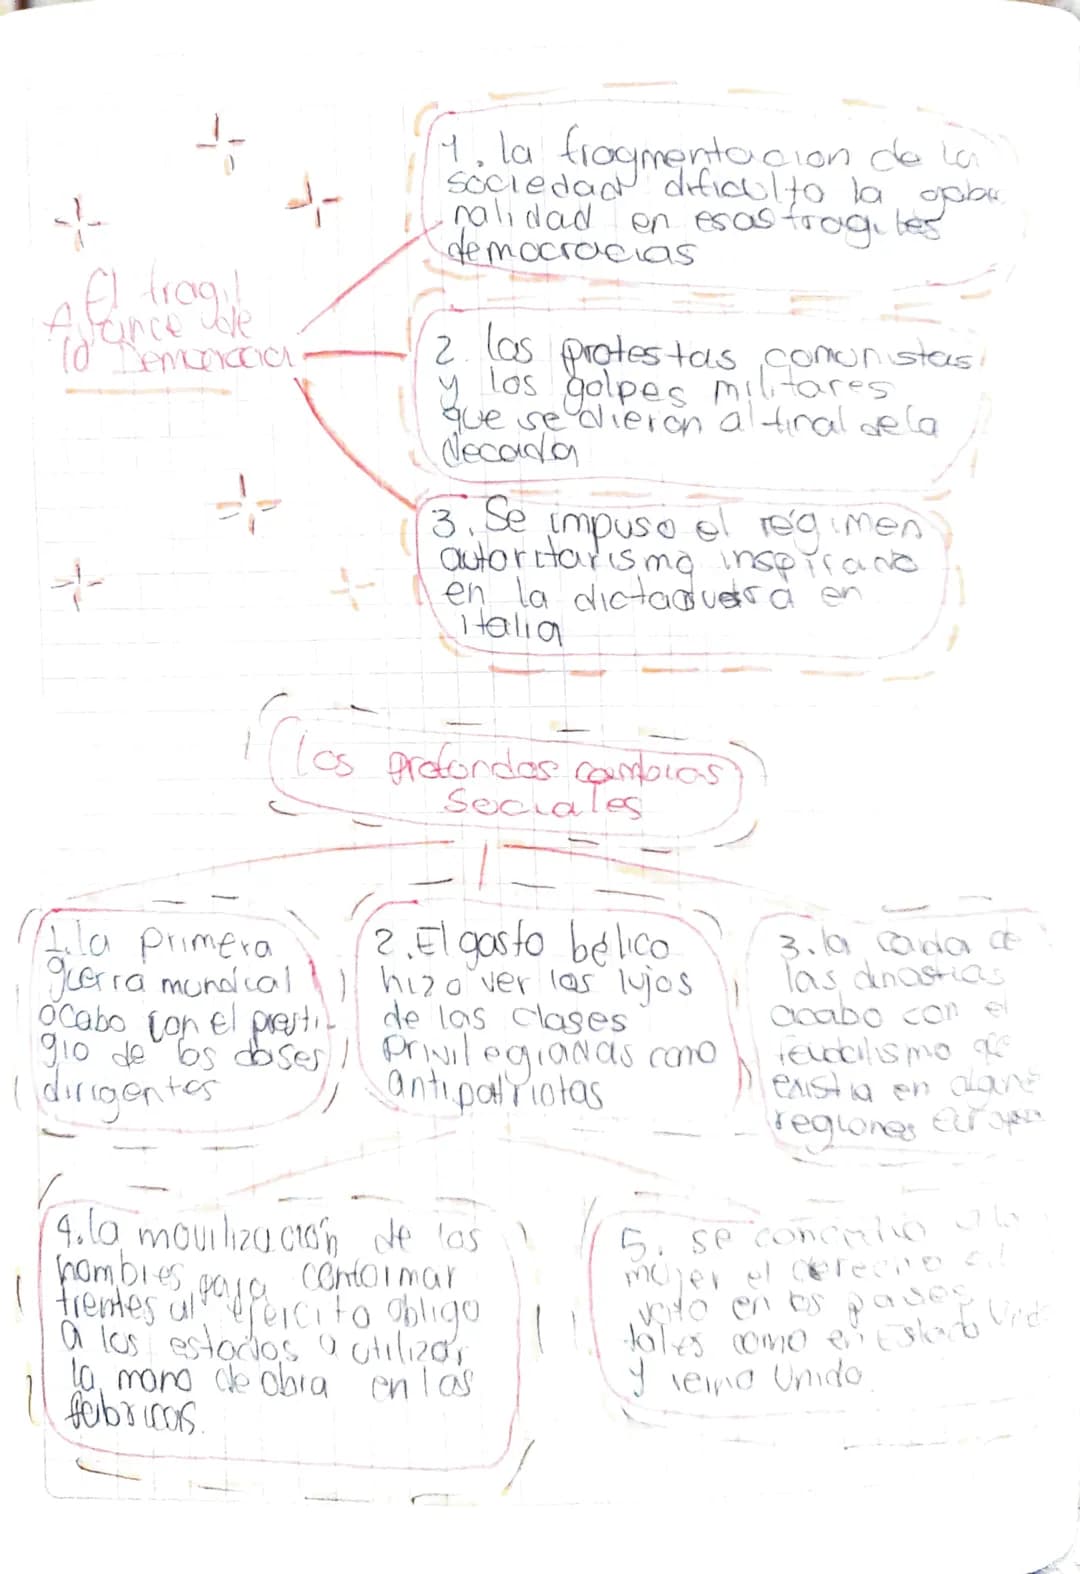 El fragil
Avance de
la Democracia
1. la fragmentacion de la
sociedad dificulto la gober
nalidad en esas fragiles
democracias
2. las protestas comunistas
y los golpes militares
que se dieron al final de la
decada
3. Se impuso el régimen
autoritarismo inspirado
en la dictadura en
italia
los profundos cambios
Sociales
1. la primera
guerra mundical
acabo con el presti-
gio de los clases
dirigentes
2. El gasto bélico
hizo ver los lujos
de las clases
privilegiadas como
antipatriotas
3. la caida de
las dinastias
acabo con el
feudalismo que
existia en algunas
regiones europeas
4. la movilización de los
hombres para conformar
frentes al ejercito obligo
a los estados a utilizar
la mano de obra en las
fabricas.
5. se concedio a la
mujer el derecho al
voto en los paises
tales como en Estado Unido
y reino Unido